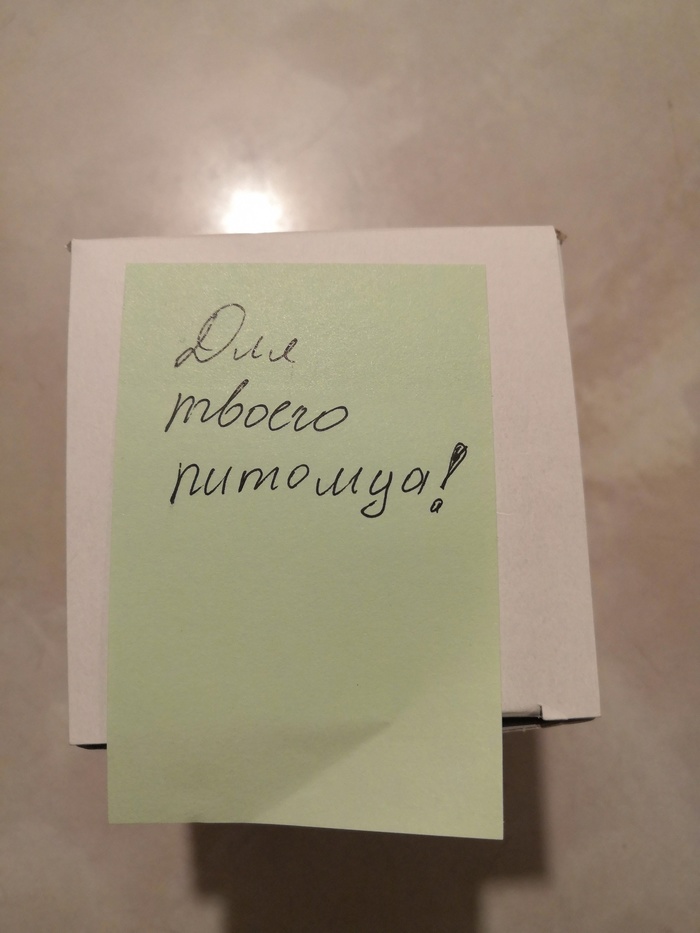 Для
твоего
питомца!